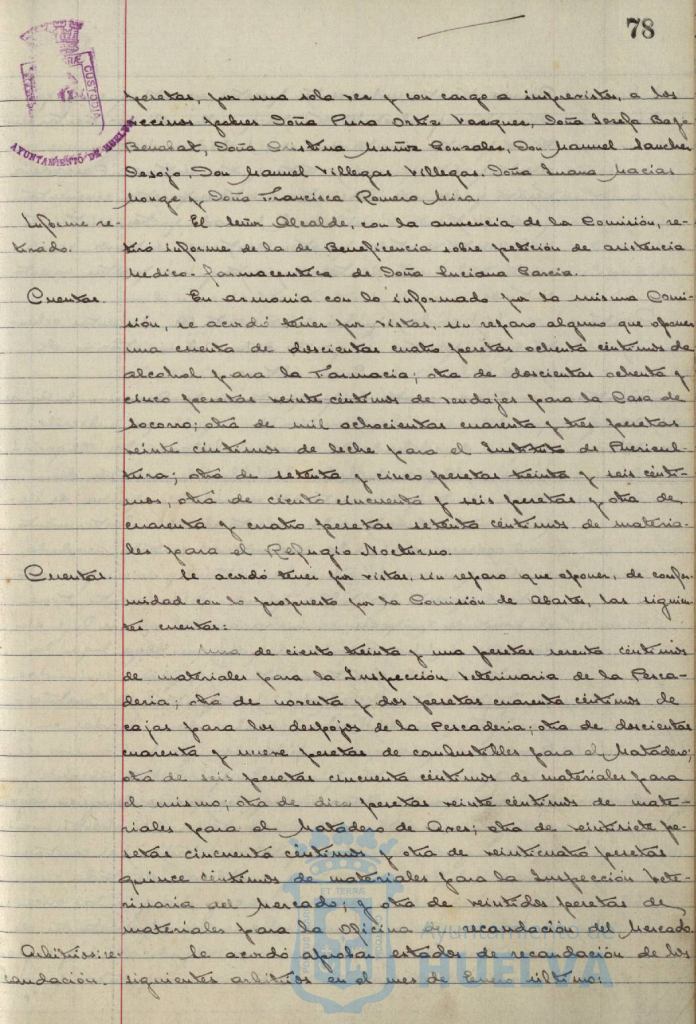 78
pesetas, por una sola vez y con cargo a imprevistos, a los
vecinos pobres Doña Pura Ortiz Vazquez, Doña Josefa
Doña Cristina Muñoz Gonzalez, Don Manuel Sanchez
Desojo, Don Manuel Villegas Villegas, Doña Juana Macias
Monge y Doña Francisca Romero Mira.
Informe re-
tirado.
El Señor Alcalde, con la anuencia de la Comisión, re-
tiró informe de la de Beneficencia sobre petición de asistencia
medico-farmaceutica de Doña Luciana Garcia.
Cuentas.
En armonia con lo informado por la misma Comi-
sión, se acordó tener por vistas, sin reparo alguno que oponer
una cuenta de doscientas cuatro pesetas ochenta céntimos de
alcohol para la Farmacia; otra de doscientas ochenta y
cinco pesetas veinte céntimos de vendajes para la Casa de
Socorro; otra de mil ochocientas cuarenta y tres pesetas
veinte céntimos de leche para el Instituto de Pericul-
tura; otra de setenta y cinco pesetas treinta y seis cénti-
mos, otra de ciento cincuenta y seis pesetas y otra de
cuarenta y cuatro pesetas setenta céntimos de materia-
les para el Refugio Nocturno.
Cuentas.
Se acordó tener por vistas, sin reparo que oponer, de confor-
midad con lo propuesto por la Comisión de Abastos, las siguien-
tes cuentas:
Una de ciento treinta y una pesetas sesenta céntimos
de materiales para la Inspección Veterinaria de la Pesca-
deria; otra de noventa y dos pesetas cuarenta céntimos de
cajas para los despojos de la Pescaderia; otra de doscientas
cuarenta y nueve pesetas de combustibles para el Matadero;
otra de seis pesetas cincuenta céntimos de materiales para
el mismo; otra de diez pesetas veinte céntimos de mate-
riales para al Matadero de Aves; otra de veintisiete pe-
setas cincuenta céntimos y otra de veinticuatro pesetas
quince céntimos de materiales para la Inspección Vete-
rinaria del Mercado; y otra de veintidos pesetas de
materiales para la Oficina de recaudación del Mercado.
Arbitrios: re-
caudación.
Se acordó aprobar estados de recaudación de los
siguientes arbitrios en el mes de Enero último:
CUSTODIA
AYUNTAMIENTO DE HUELVA
ET TERRA
Ayuntamiento de
HUELVA